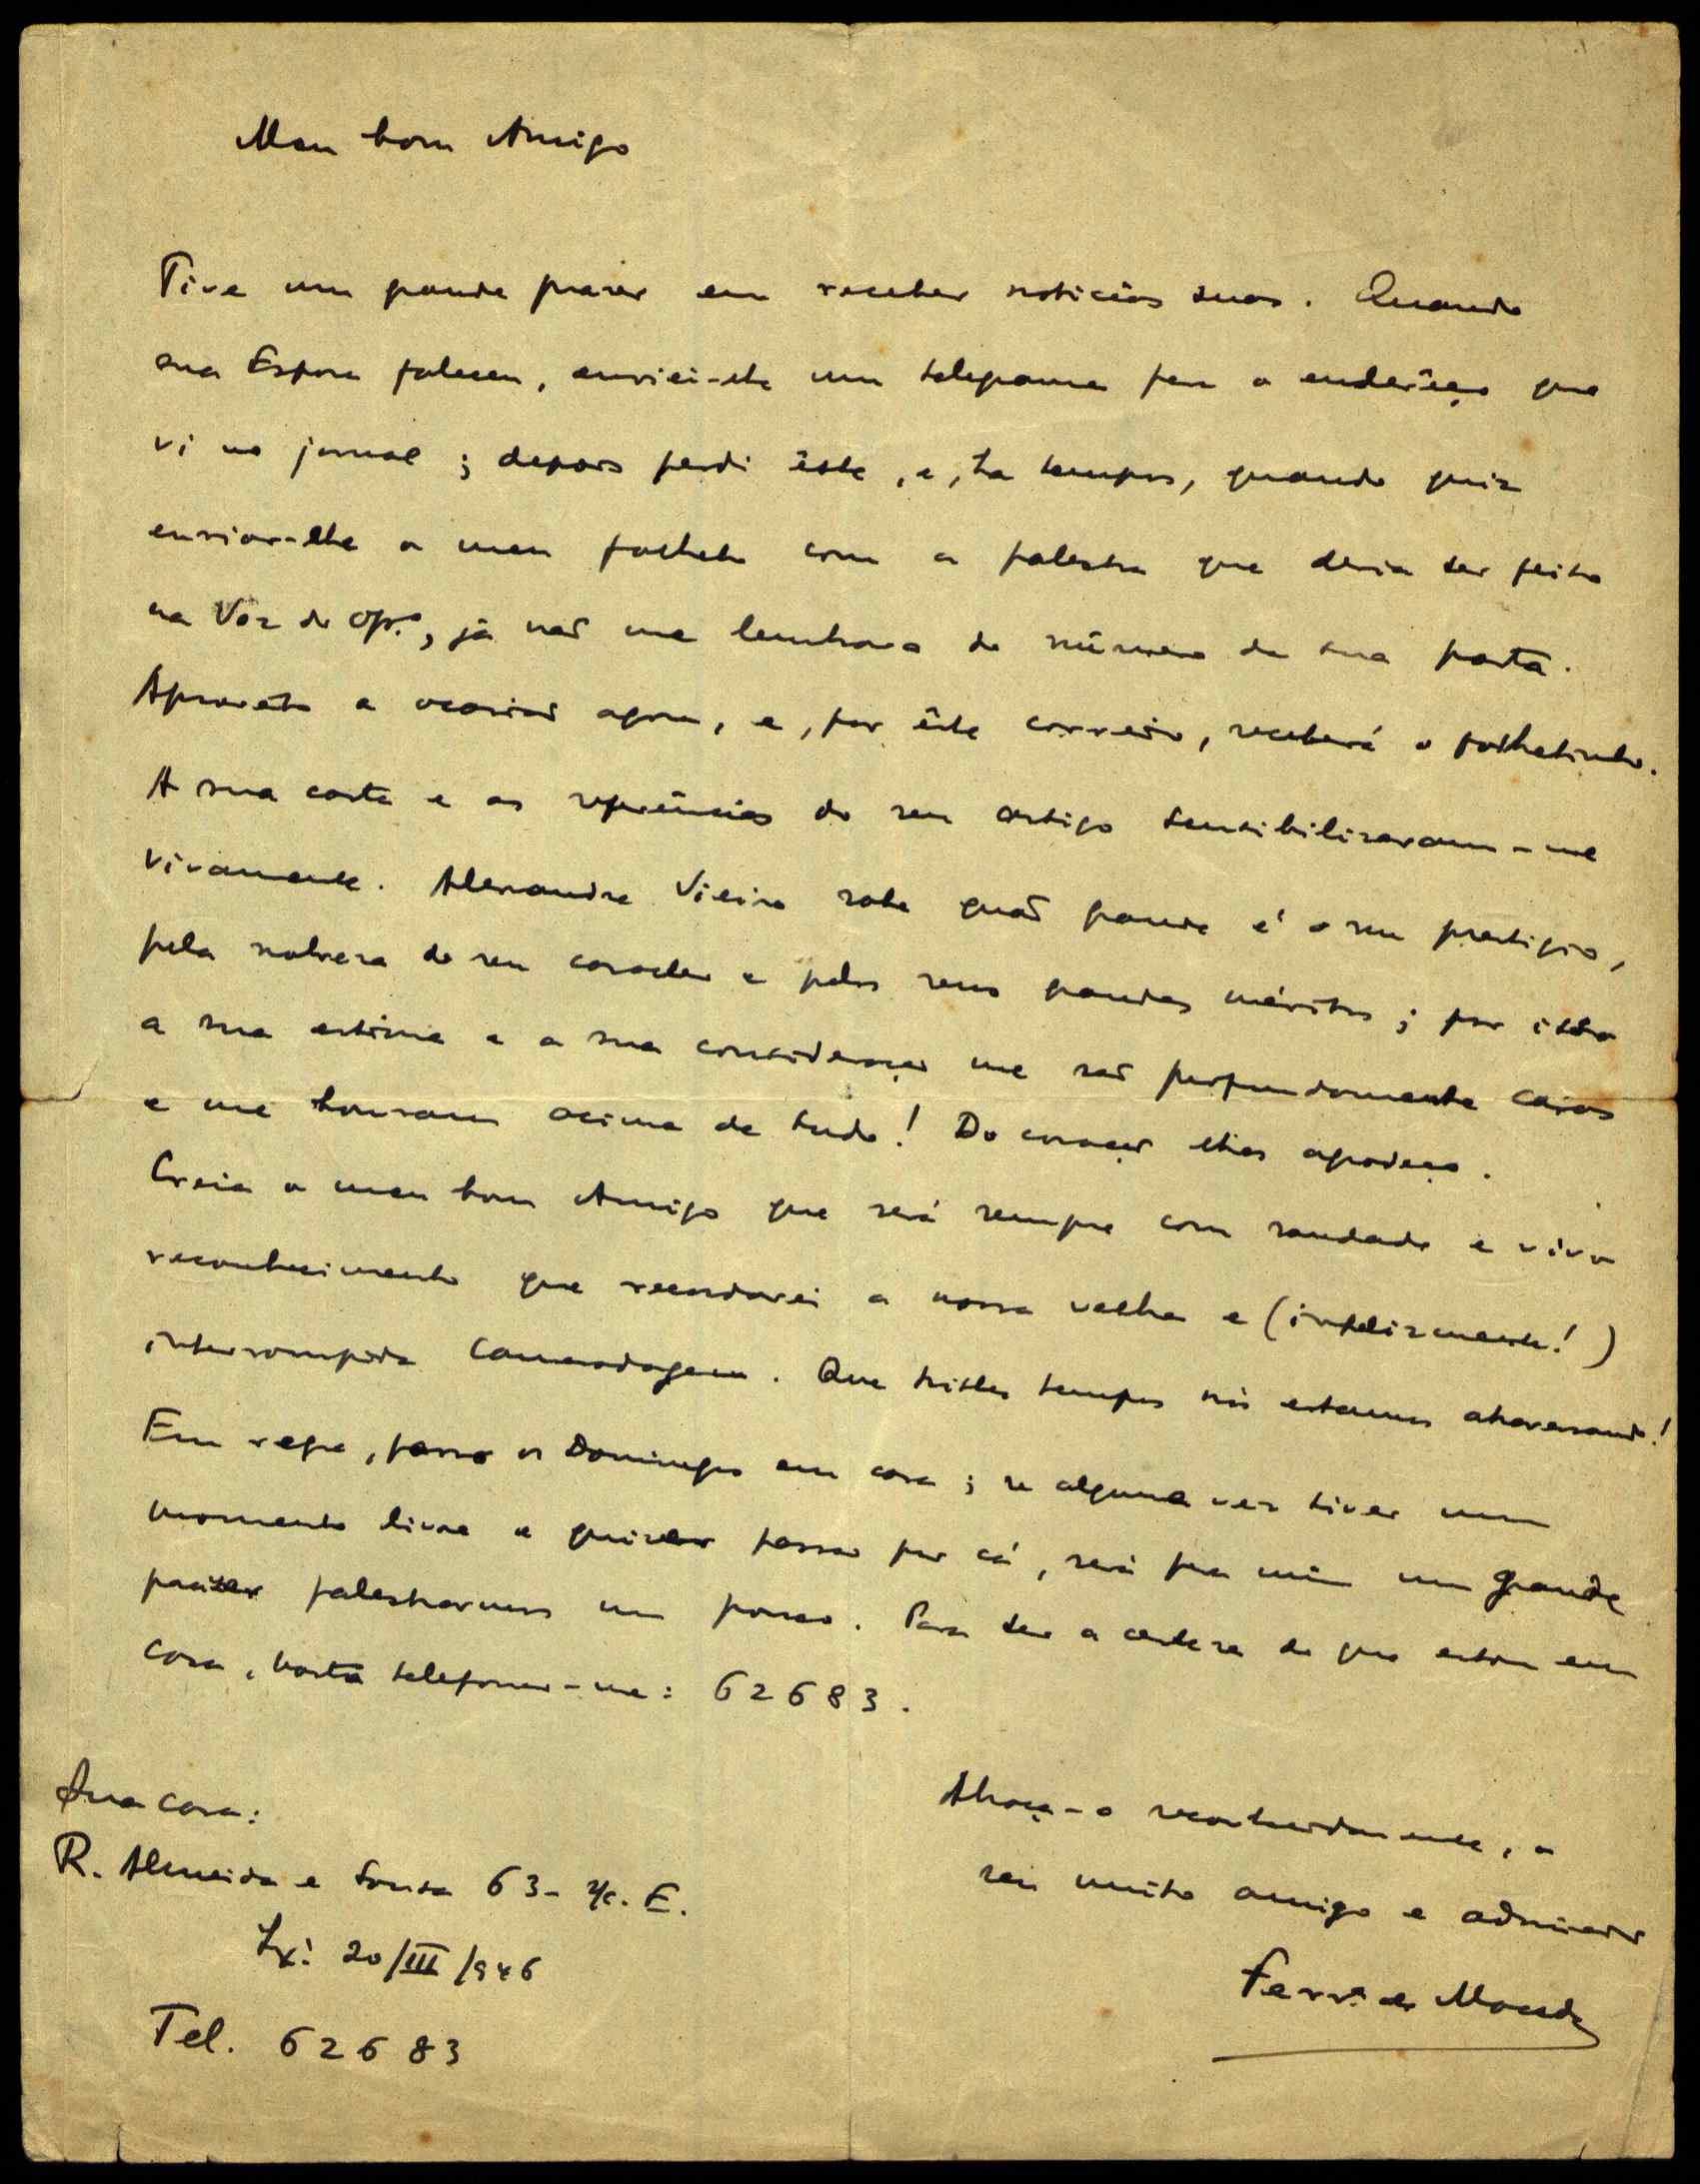 Meu bom Amigo
Tive um grande prazer em receber noticias suas. Quando
sua Esposa faleceu, enviei-lhe um telegrama para o enderêço que
vi no jornal; depois perdi êste, e, ha tempos, quando quiz
enviar-lhe o meu folheto com a palestra que devia ser feita
na Voz do Op.º, já não me lembrava do número da sua porta.
Aproveito a ocasião agora, e, por êste correio, receberá o folhetinho.
A sua carta e as referências do seu artigo sensibilizaram-me
vivamente. Alexandre Vieira sabe quão grande é o seu prestigio,
pela nobreza do seu caracter e pelos seus grandes méritos; por isso
a sua estima e a sua consideração me são profundamente caras
e me honram acima de tudo! Do coração lhas agradeço.
Creia o meu bom Amigo que será sempre com saudade e vivo
reconhecimento que recordarei a nossa velha e (infelizmente!)
interrompida camaradagem. Que tristes tempos nós estamos atravessando!
Em regra, passo os Domingos em casa; se alguma vez tiver um
momento livre e quizer passar por cá, será para mim um grande
prazer palestrarmos um pouco. Para ter a certeza de que estou em
casa, basta telefonar-me: 62683.
Sua casa:
R. Almeida e Sousa 63- r/c. E.
Lx.ª 20/III/946
Tel. 62683
Abraça-o reconhecidamente, o
seu muito amigo e admirador
Ferr.ª de Macedo